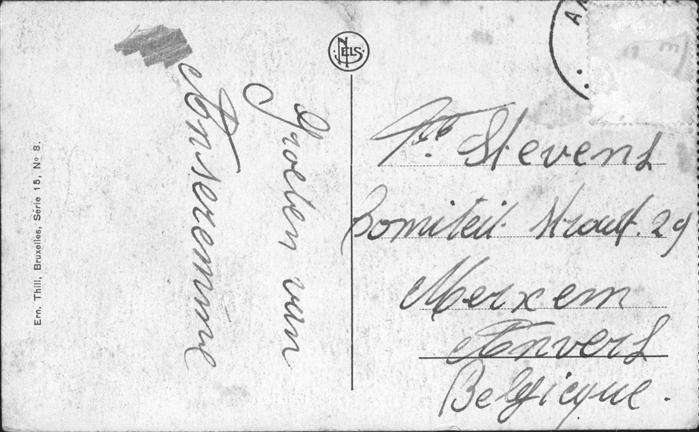 Ern. Thill, Bruxelles, Série 15, No 8.
Groeten van
Anseremme
NELS
A
Stevens
Comiteit Straat. 29
Merxem
Anvers
Belgicque.